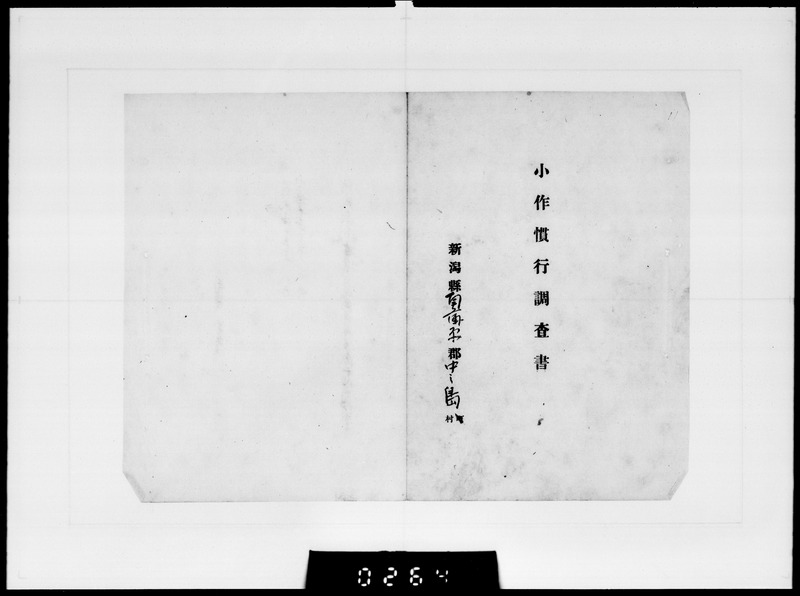 小作慣行調査書
新潟縣南蒲原郡中之島村
0264